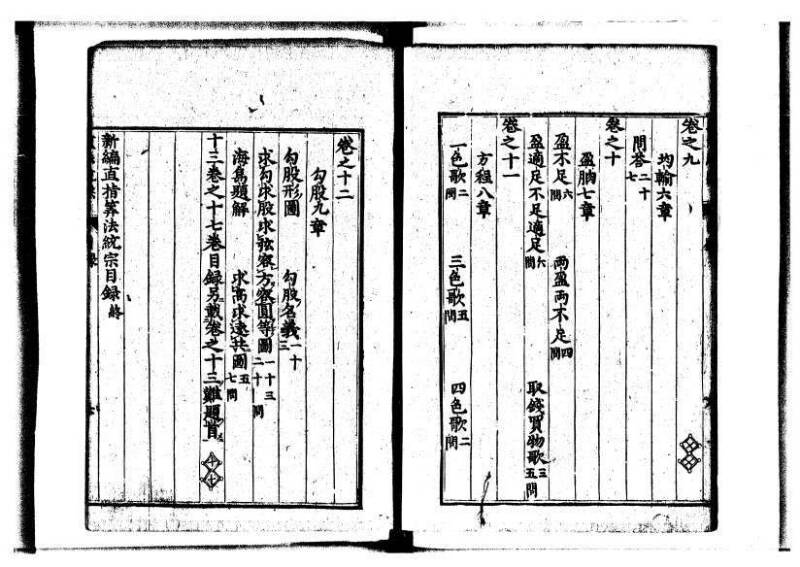 卷之九
均輸六章
問荅二十七
卷之十
盈朒七章
盈不足六問 兩盈兩不足四問
盈適足不足適足六問 取錢買物歌三五問
卷之十一
方程八章
二色歌二問 三色歌五問 四色歌二問
卷之十二
勾股九章
勾股形圖 勾股名義一十三
求勾求股求弦容方容圓等圖一十三二十問
海島題解 求高求遠共圖五七問
十三卷之十七卷目録另載卷之十三難題首
新編直指算法統宗目録終